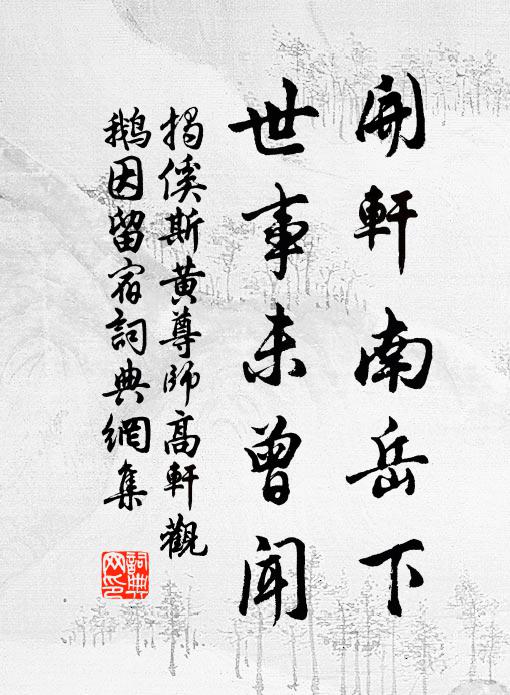 開軒南岳下
世事未曾聞
揭傒斯黄尊師高軒觀
鵝因留宿詞典網集
詞典网印